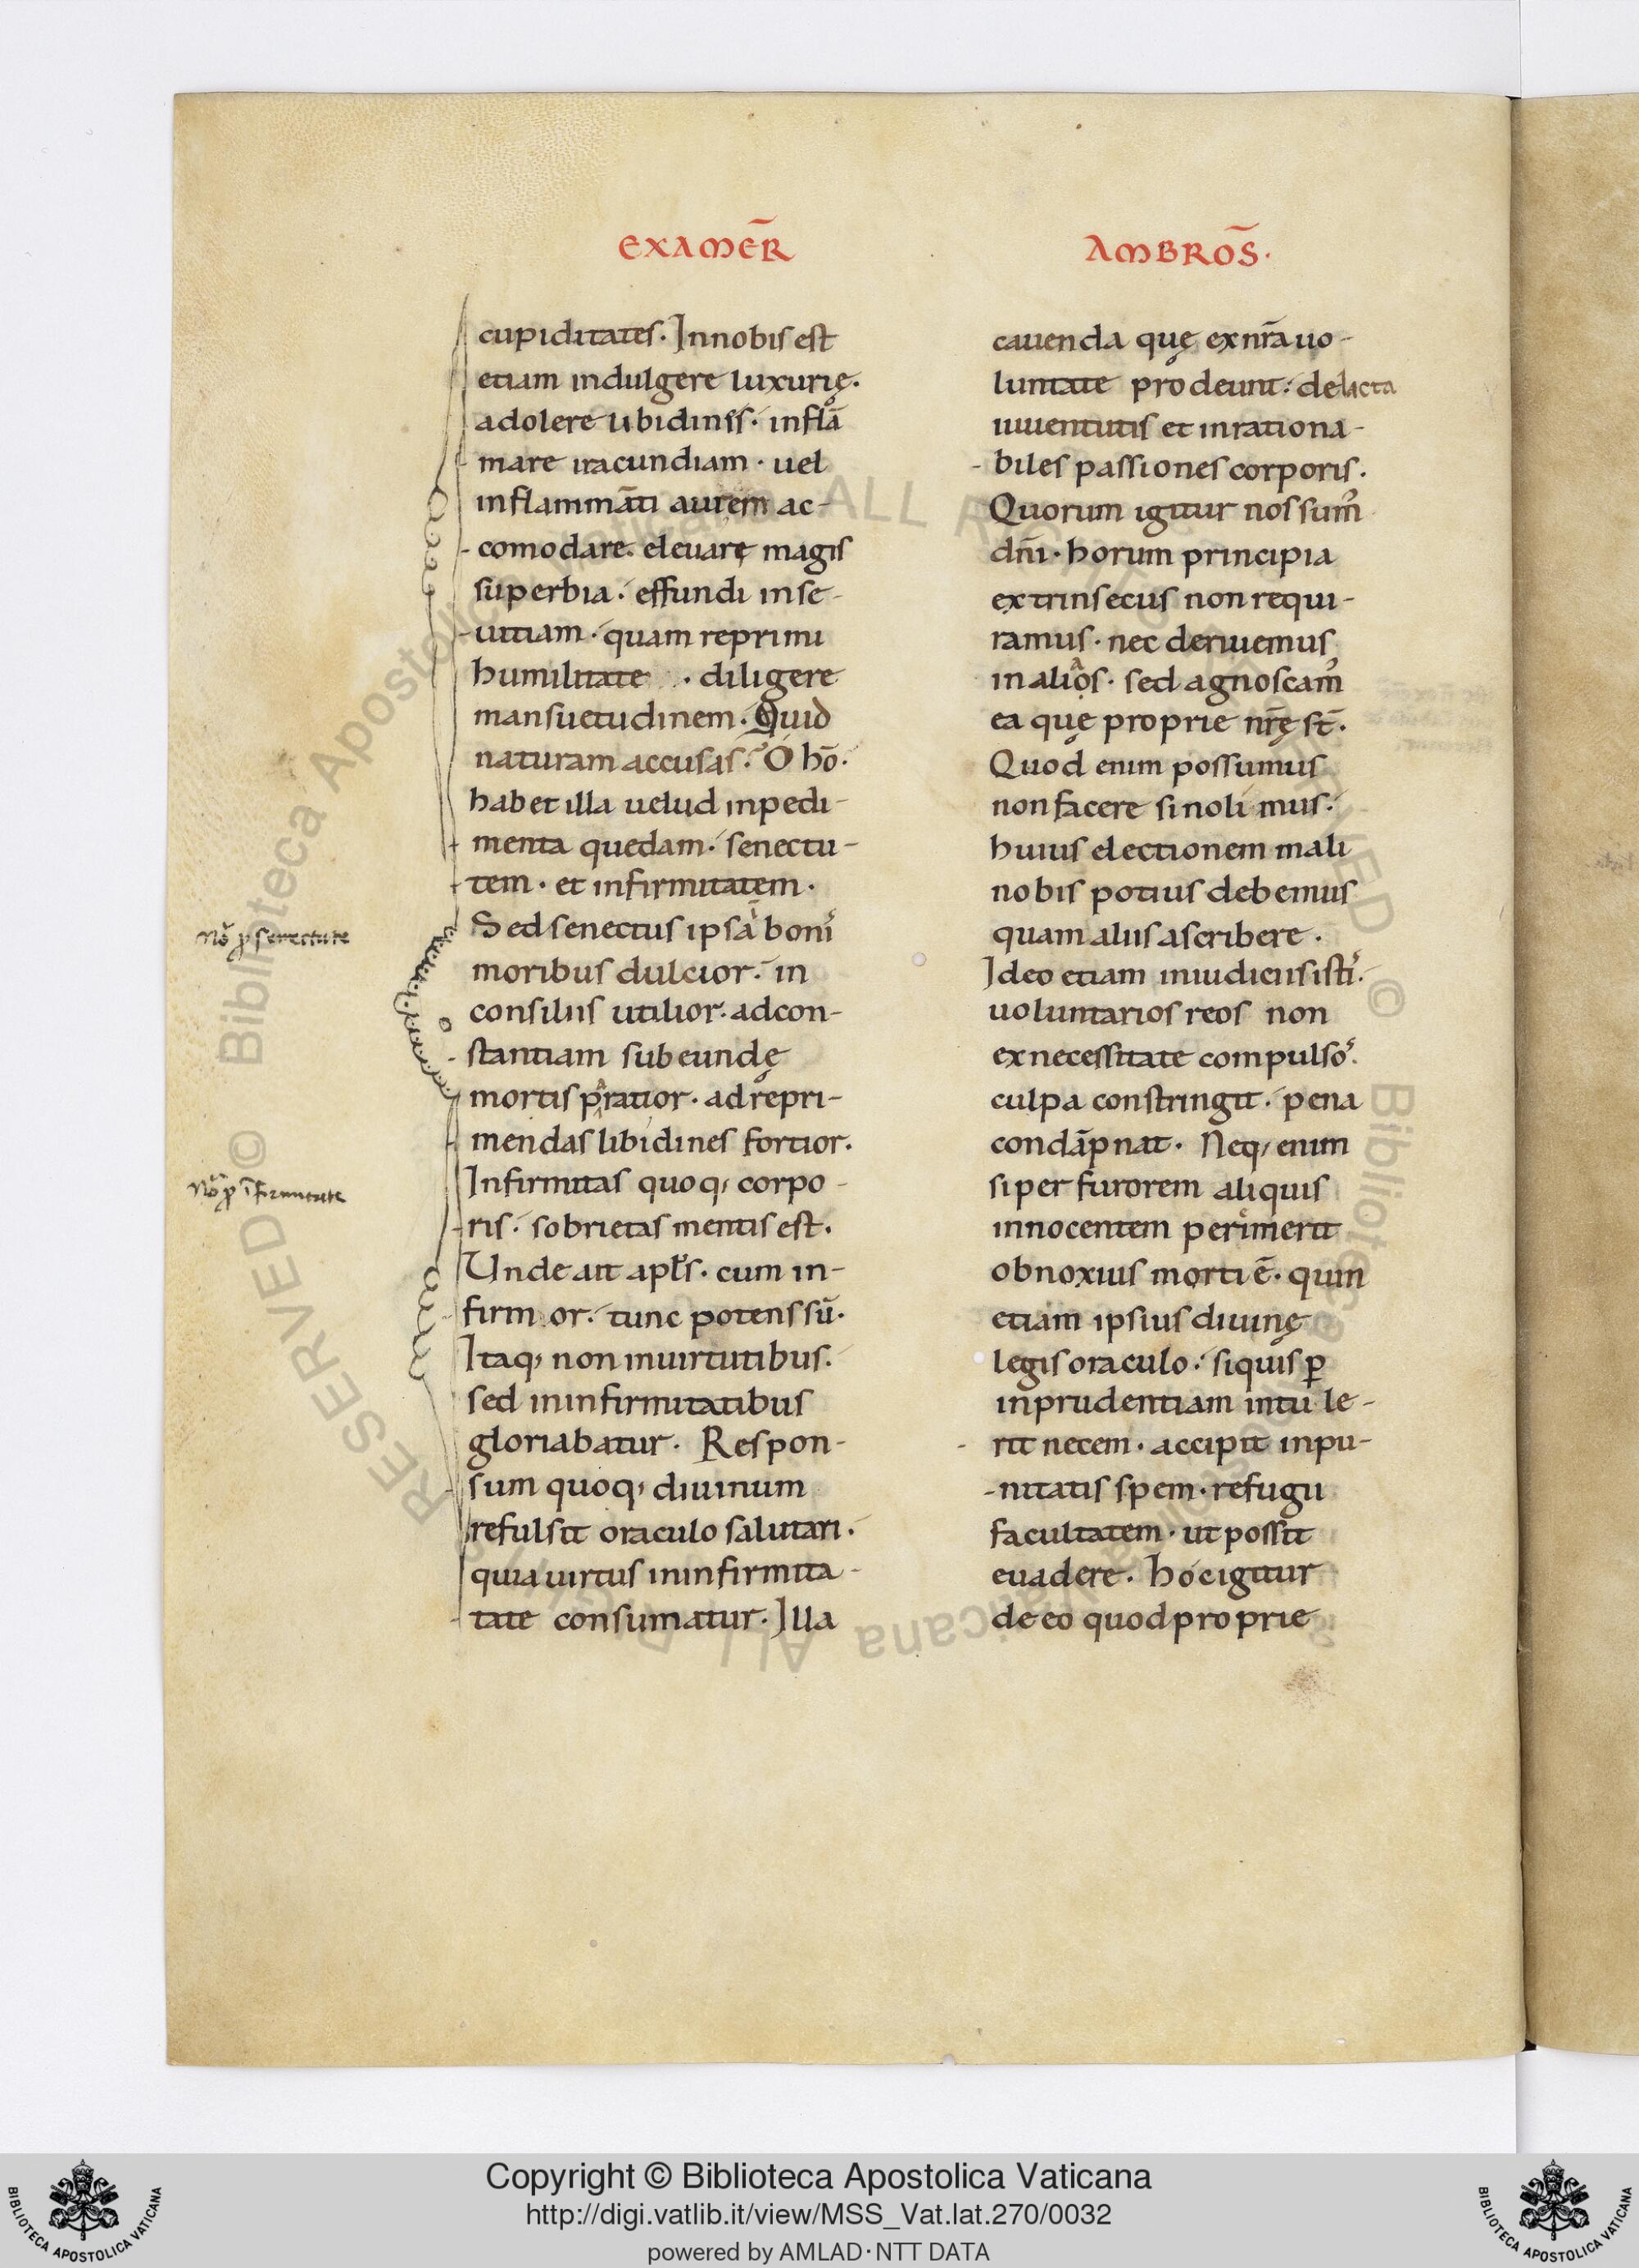 EXAMER̄
AMBROS̄·
cupiditates· Innobis est
etiam indulgere luxurię·
adolere libidinis· inflā
mare iracundiam· uel
inflammāti aurem ac-
-comodare· eleuarę magis
superbia· effundi inse-
-uitiam· quam reprimi
humilitate · diligere
mansuetudinem· Quid
naturam accusas· O hō·
habet illa uelud inpedi-
menta quedam· senectu-
-tem· et infirmitatem·
Sed senectus ipsa boni᷒
moribus dulcior· in
consiliis utilior· adcon-
-stantiam subeundę
mortis paratior· ad repri-
mendas libidines fortior·
Infirmitas quoq; corpo-
-ris· sobrietas mentis est·
Unde ait apl̄s· cum in-
firmor· tunc potens sū·
Itaq; non inuirtutibus·
sed ininfirmitatibus
gloriabatur· Respon-
-sum quoq; diuinum
refulsit oraculo salutari·
quia uirtus ininfirmita-
-tate consumatur· Illa
Nō p senectute
Nō p īfirmitate
cauenda quę exnr̄a uo-
luntate prodeunt· delicta
iuuentutis et inrationa-
-biles passiones corporis·
Quorum igitur nos sum᷒
dn̄i· horum principia
extrinsecus non requi-
ramus· nec deriuemus
in alios· sed agnoscam᷒
ea quę proprie nr̄ę st̄·
Quod enim possumus
non facere si noli mus·
huius electionem mali
nobis potius debemus
quam aliis ascribere·
Ideo etiam iniudiciis isti᷒·
uoluntarios reos non
ex necessitate compulso᷒·
culpa constringit· pena
condāpnat· Neq; enim
si per furorem aliquis
innocentem perimerit
obnoxius morti ē· quin
etiam ipsius diuinę
legis oraculo· siquis ꝑ
inprudentiam intule-
-rit necem· accipit inpu-
-nitatis spem· refugii
facultatem· ut possit
euadere· hoc igitur
de eo quod proprie
Copyright © Biblioteca Apostolica Vaticana
http://digi.vatlib.it/view/MSS_Vat.lat.270/0032
powered by AMLAD·NTT DATA
BIBLIOTECA APOSTOLICA VATICANA
BIBLIOTECA APOSTOLICA VATICANA